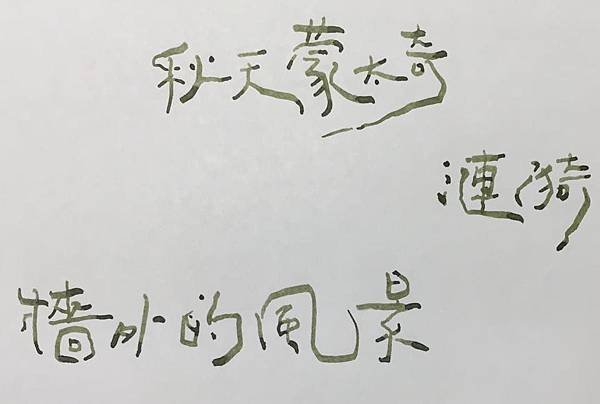 秋天蒙太奇
漣漪
牆外的風景